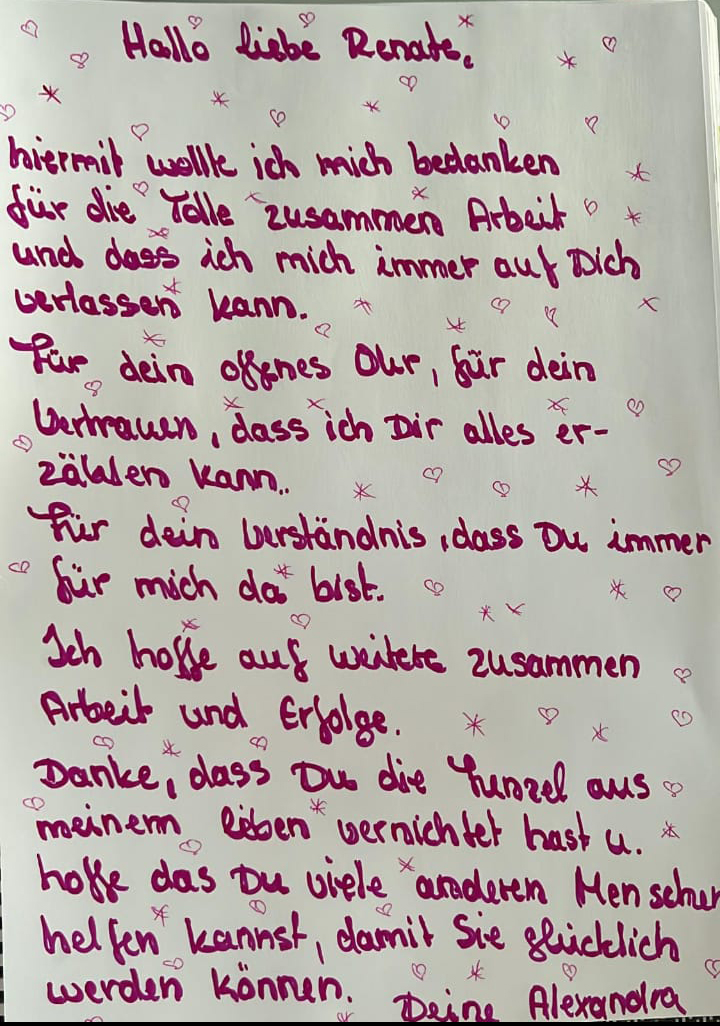 Hallo liebe Renate,
hiermit wollte ich mich bedanken
für die Tolle zusammen Arbeit
und dass ich mich immer auf Dich
verlassen kann.
Für dein offenes Ohr, für dein
Vertrauen, dass ich Dir alles er-
zählen kann.
Für dein Verständnis, dass Du immer
für mich da bist.
Ich hoffe auf weitere zusammen
Arbeit und Erfolge.
Danke, dass Du die Funzel aus
meinem leben vernichtet hast u.
hoffe das Du viele anderen Menschen
helfen kannst, damit Sie glücklich
werden können.
Deine Alexandra